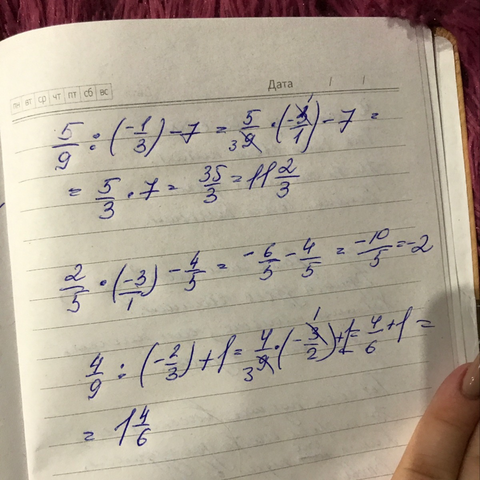 пн вт ср чт пт сб вс Дата / /
5/9 : (-1/3) - 7 = 5/9 3 · (-3/1 1) - 7 =
= 5/3 · 7 = 35/3 = 11 2/3
2/5 · (-3/1) - 4/5 = -6/5 - 4/5 = -10/5 = -2
4/9 : (-2/3) + 1 = 4/9 3 · (-3/2 1) + 1 = 4/6 + 1 =
= 1 4/6